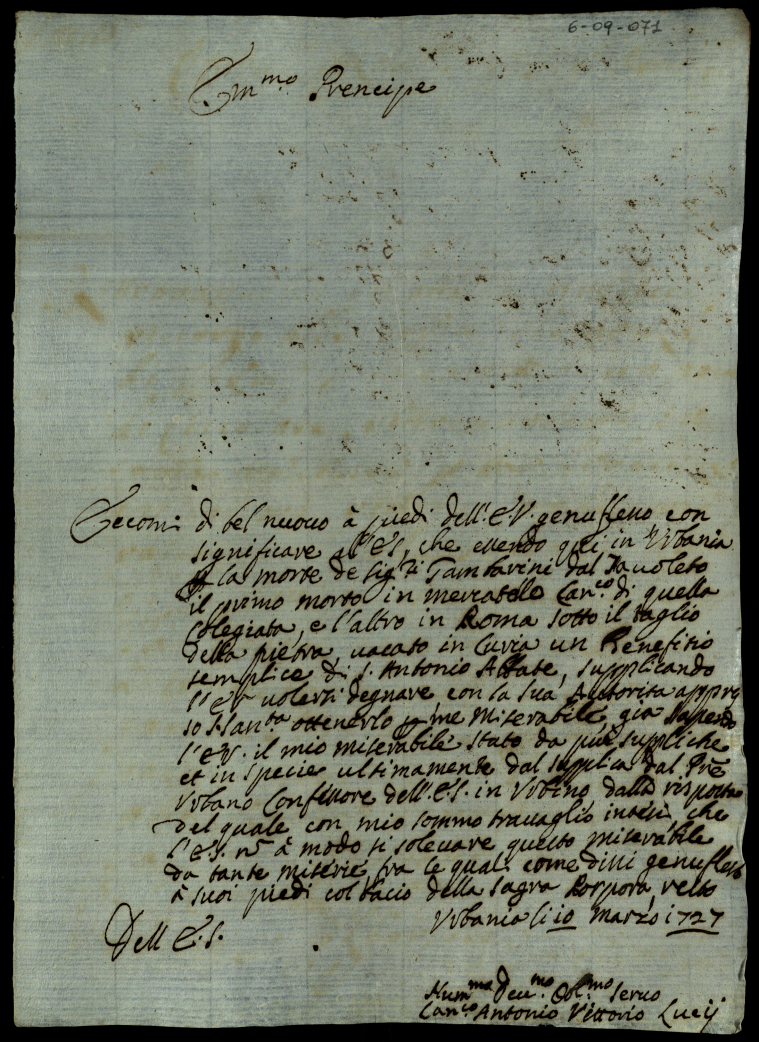 6-09-071
Em.mo Prencipe
Eccomi di bel nuouo à piedi dell'E.V. genuflesso con
significare all'E.S., che essendo qui in Urbania
la morte de Sig.ri Tamburini dal Tauoleto
il primo morto in mercatello Can.co di quella
Colegiata, e l'altro in Roma sotto il taglio
della pietra, uacato in Curia un Benefitio
semplice di S. Antonio Abbate, supplicando
l'E.V. uolersi degnare con la sua Autorità appres
so S. Santa ottenerlo per me Miserabile, già sapendo
l'E.V. il mio miserabile stato da più suppliche
et in specie ultimamente dal supplica dal Pre
Urbano Confessore dell'E.S. in Urbino dalla risposta
del quale con mio sommo trauaglio intesi, che
l'E.S. n à modo si soleuare questo miserabile
da tante miserie, fra le quali come dissi genuflesso
à suoi piedi col bacio della sagra Porpora, resto
Urbania li 10 Marzo 1727
Dell E.S.
Hum.ma Deu.mo Obl.mo Seruo
Can.co Antonio Vittorio Lucij